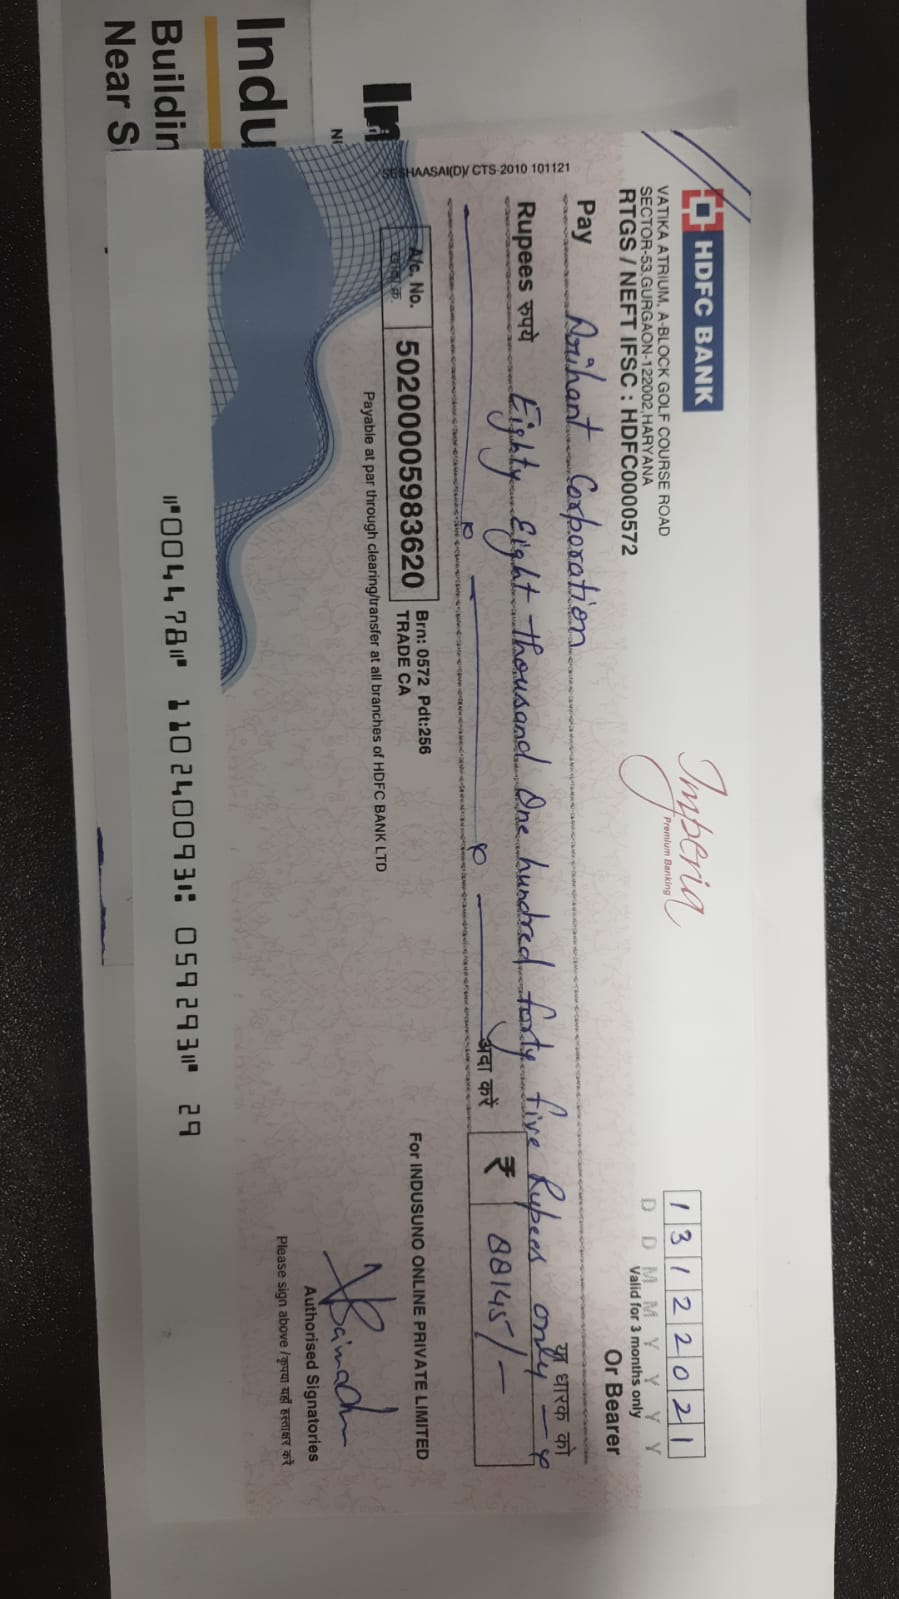 HDFC BANK
VATIKA ATRIUM, A-BLOCK GOLF COURSE ROAD
SECTOR-53,GURGAON-122002,HARYANA
RTGS / NEFT IFSC : HDFC0000572
Imperia
Premium Banking
13122021
D D M M Y Y Y Y
Valid for 3 months only
Pay Arihant Corporation
Or Bearer
या धारक को
Rupees रुपये Eighty Eight thousand One hundred forty five Rupees only
अदा करें
₹ 88145/-
A/c. No. 50200005983620
खाता क्र.
Brn: 0572 Pdt:256
TRADE CA
Payable at par through clearing/transfer at all branches of HDFC BANK LTD
For INDUSUNO ONLINE PRIVATE LIMITED
Authorised Signatories
Please sign above /कृपया यहाँ हस्ताक्षर करें
⑈004478⑈ 110240093⑆ 059293⑈ 29
SESHAASAI(D)/ CTS-2010 101121
Indu
Buildin
Near S